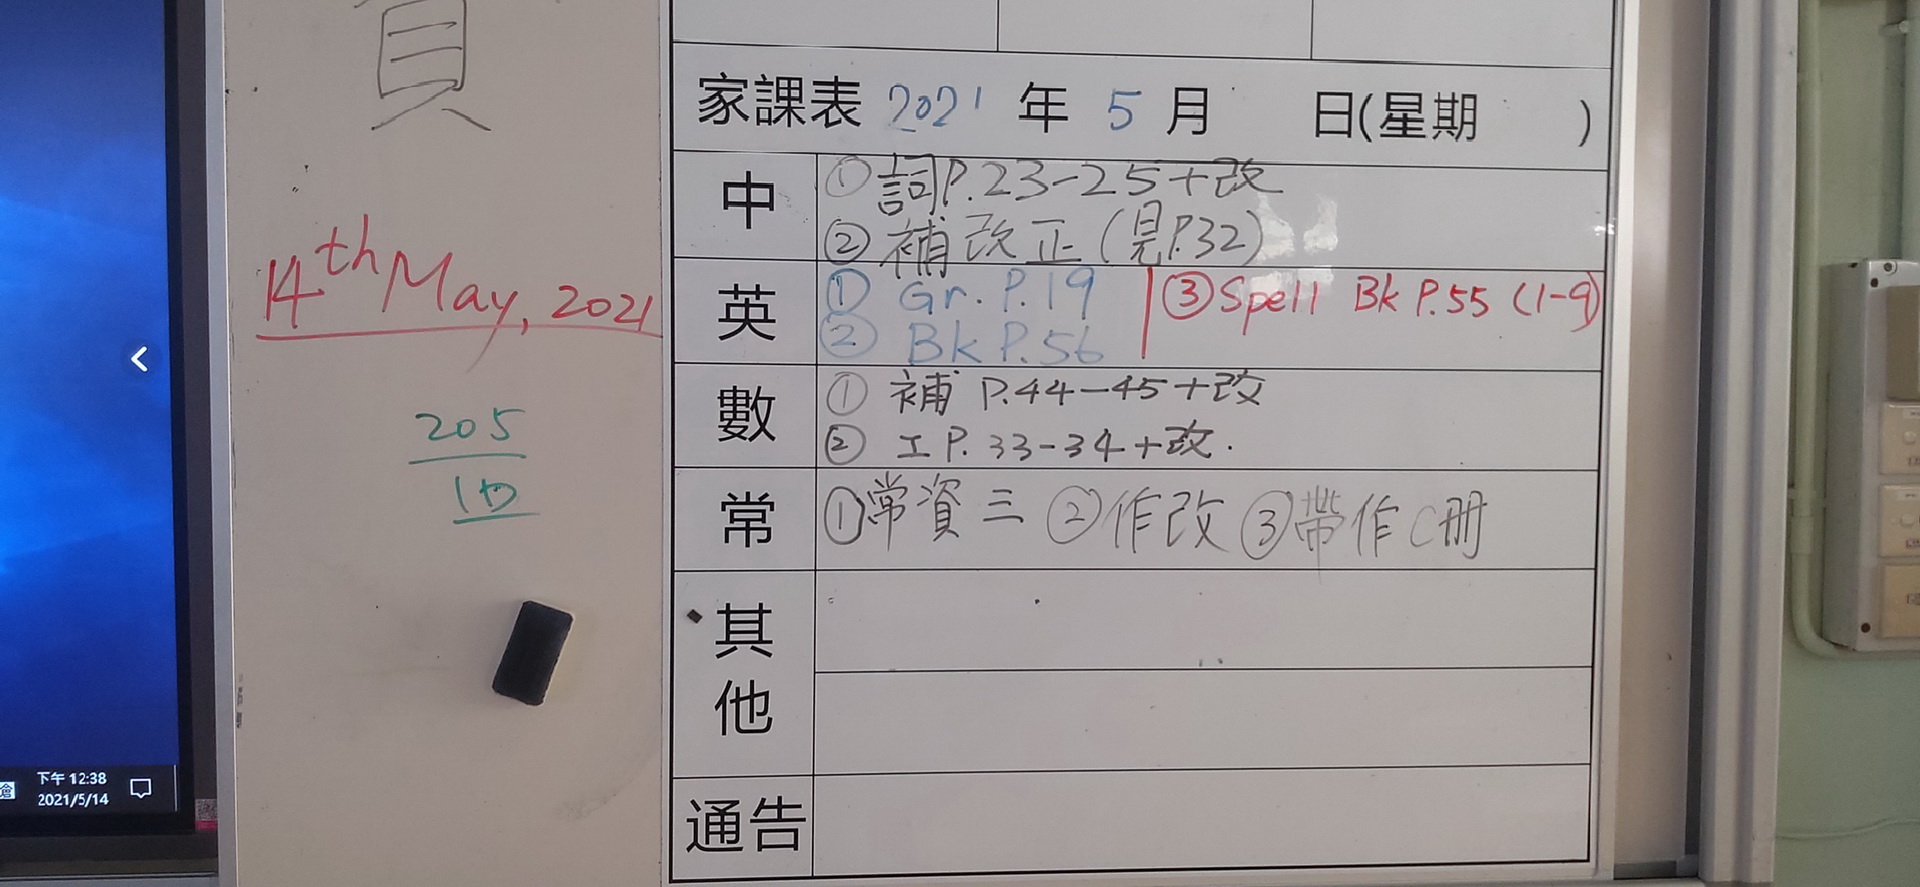 家課表 2021 年 5 月 日(星期 )
中
① 詞P.23-25+改
② 補改正(見P.32)
英
① Gr. P.19
② Bk P.56
③ Spell Bk P.55 (1-9)
數
① 補 P.44-45+改
② 工 P.33-34+改.
常
①常資三 ②作改 ③帶作C冊
其他
通告
14th May, 2021
205
下午 12:38
2021/5/14
倉